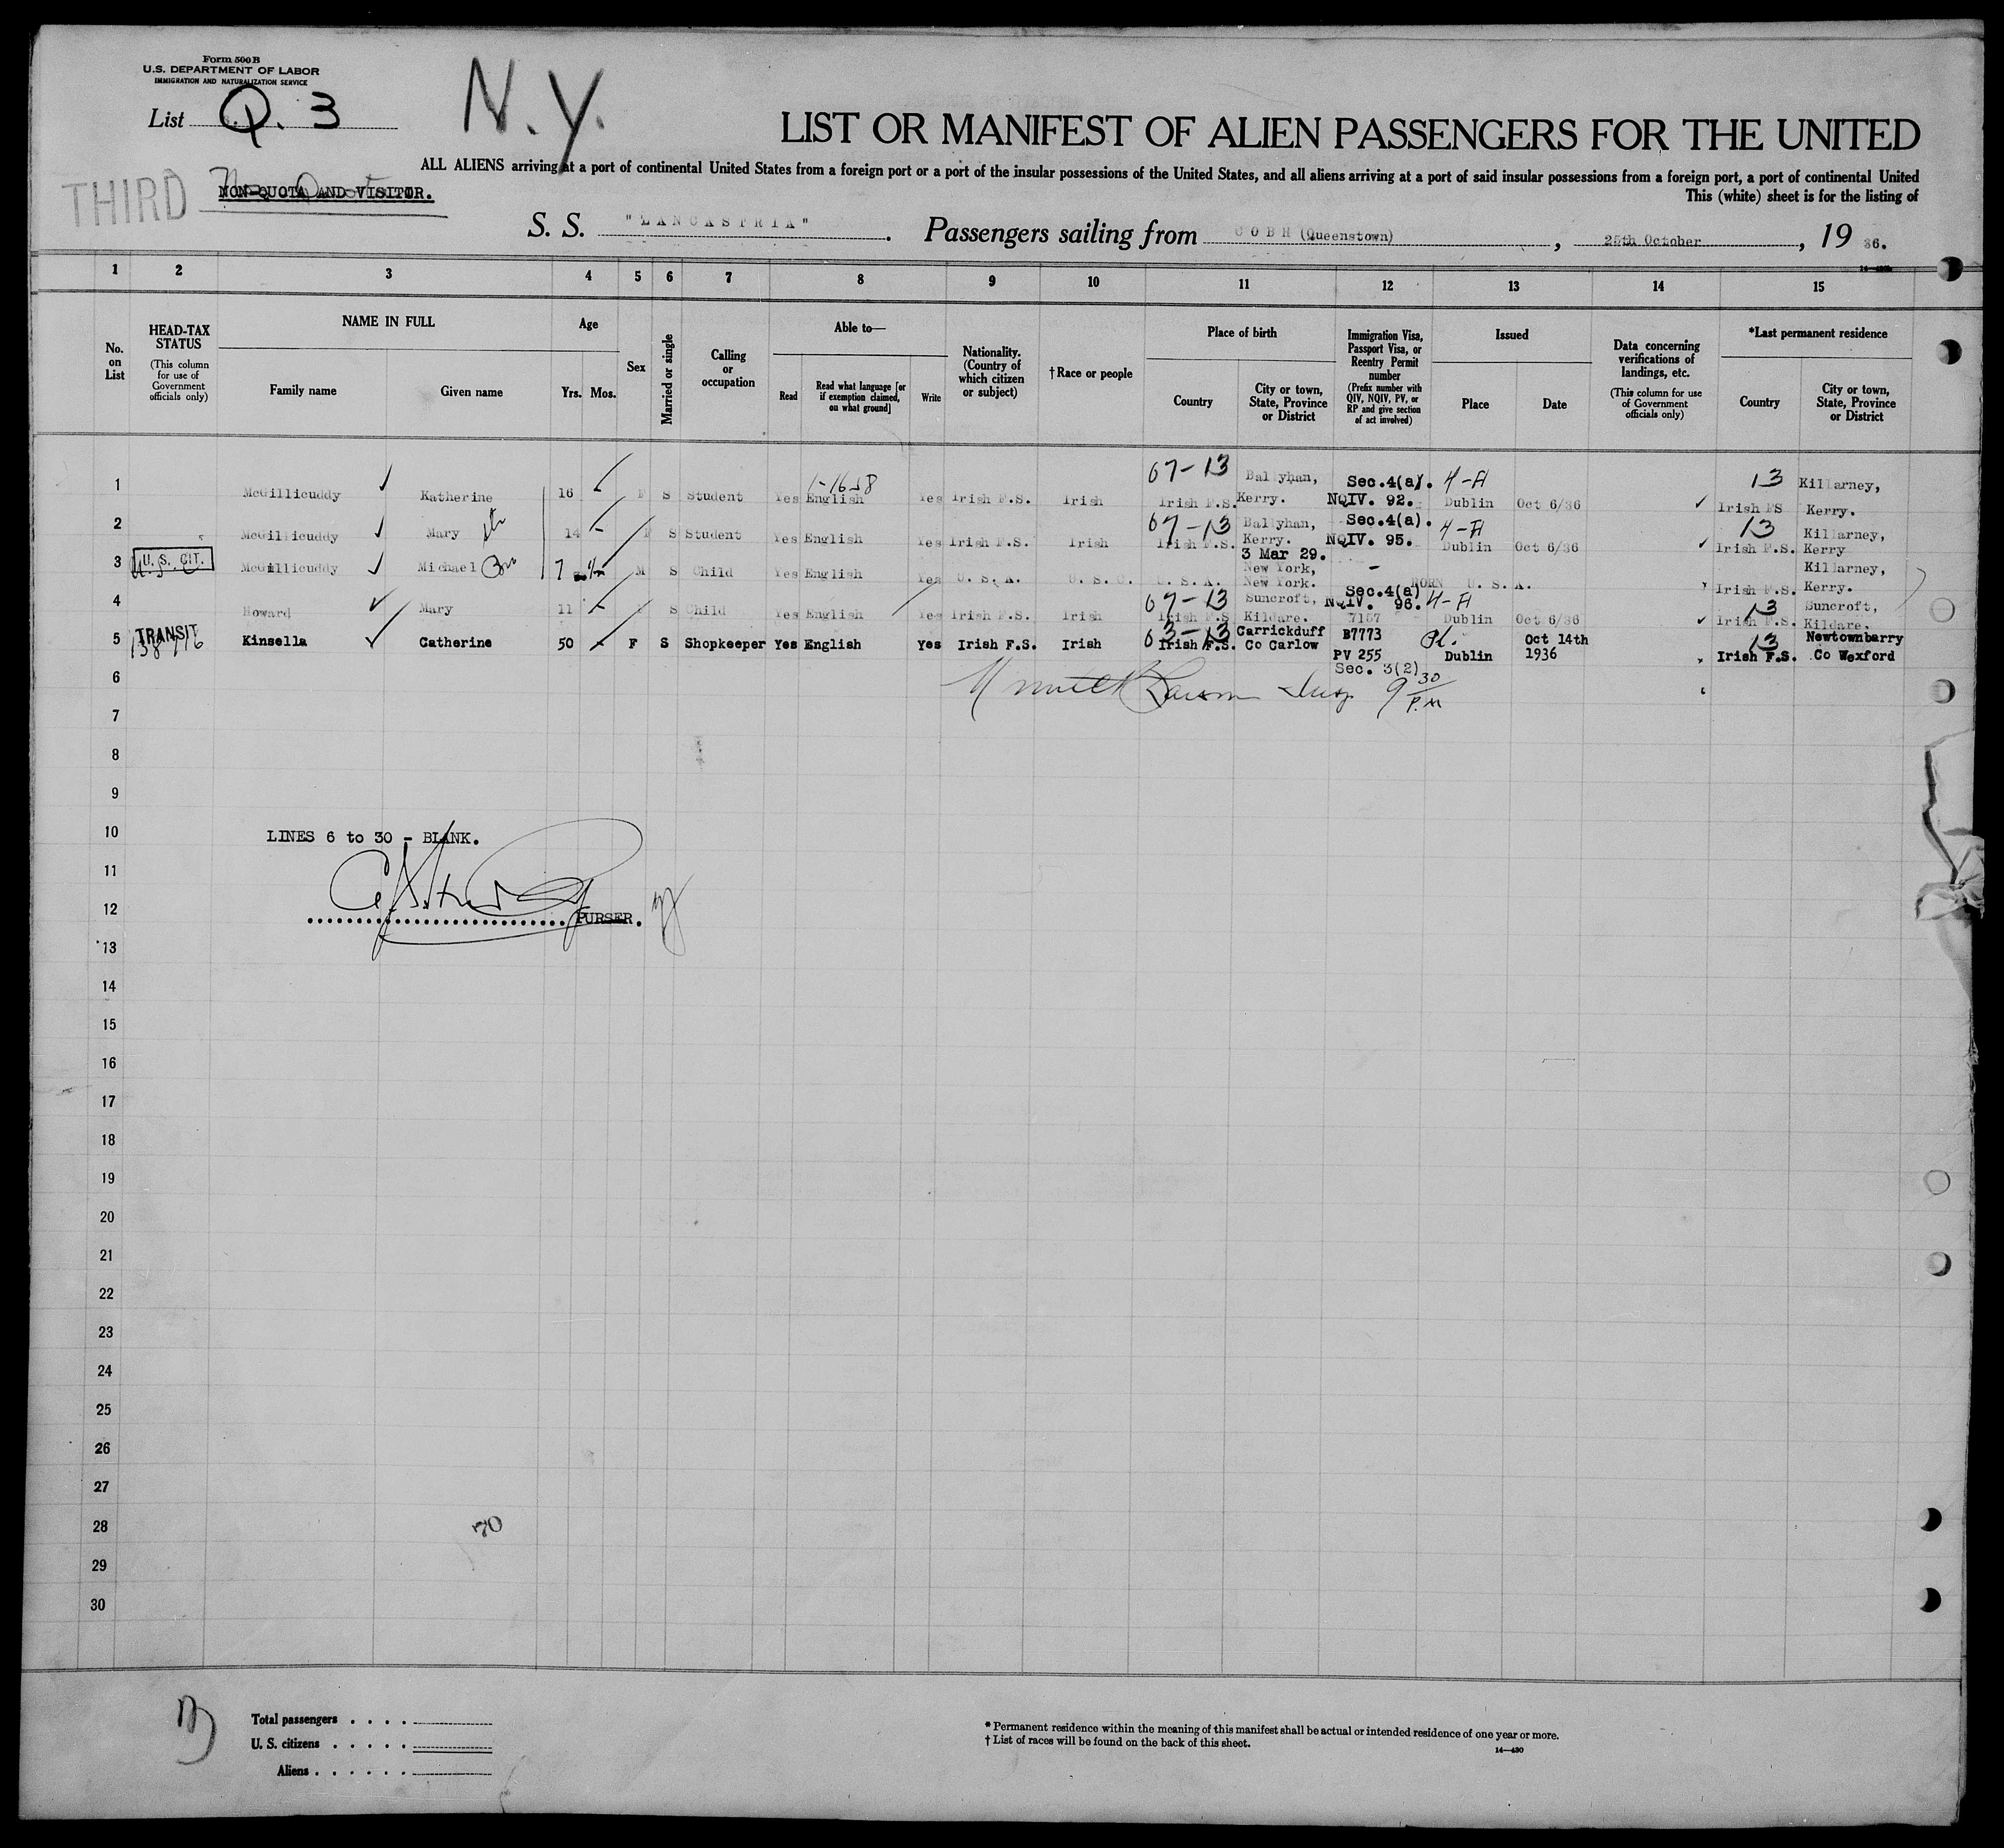 Form 500 B
U.S. DEPARTMENT OF LABOR
IMMIGRATION AND NATURALIZATION SERVICE
List Q. 3
N.Y.
LIST OR MANIFEST OF ALIEN PASSENGERS FOR THE UNITED
ALL ALIENS arriving at a port of continental United States from a foreign port or a port of the insular possessions of the United States, and all aliens arriving at a port of said insular possessions from a foreign port, a port of continental United
THIRD NON-QUOTA AND VISITOR.
This (white) sheet is for the listing of
S. S. "LANCASTRIA". Passengers sailing from COBH (Queenstown), 25th October, 19 36.
1 2 3 4 5 6 7 8 9 10 11 12 13 14 15
No. on List
HEAD-TAX STATUS
(This column for use of Government officials only)
NAME IN FULL
Family name Given name
Age
Yrs. Mos.
Sex
Married or single
Calling or occupation
Able to—
Read Read what language [or if exemption claimed, on what ground] Write
Nationality. (Country of which citizen or subject)
†Race or people
Place of birth
Country City or town, State, Province or District
Immigration Visa, Passport Visa, or Reentry Permit number
(Prefix number with QIV, NQIV, PV, or RP and give section of act involved)
Issued
Place Date
Data concerning verifications of landings, etc.
(This column for use of Government officials only)
*Last permanent residence
Country City or town, State, Province or District
1 McGillicuddy Katherine 16 F S Student Yes English Yes Irish F.S. Irish 67-13 Irish F.S. Ballyhan, Kerry. Sec.4(a). NQIV. 92. 4-A Dublin Oct 6/36 13 Irish FS Killarney, Kerry.
2 McGillicuddy Mary 14 F S Student Yes English Yes Irish F.S. Irish 67-13 Irish F.S. Ballyhan, Kerry. Sec.4(a). NQIV. 95. 4-A Dublin Oct 6/36 13 Irish F.S. Killarney, Kerry
3 U.S. CIT. McGillicuddy Michael 7 M S Child Yes English Yes U.S.A. U.S.C. U.S.A. 3 Mar 29. New York, New York. - BORN U.S.A. Irish F.S. Killarney, Kerry.
4 Howard Mary 11 S Child Yes English Yes Irish F.S. Irish 67-13 Irish F.S. Suncroft, Kildare. Sec.4(a) NQIV. 96. 7157 4-A Dublin Oct 6/36 13 Irish F.S. Suncroft, Kildare.
5 TRANSIT Kinsella Catherine 50 F S Shopkeeper Yes English Yes Irish F.S. Irish 63-13 Irish F.S. Carrickduff Co Carlow B7773 PV 255 Sec. 3(2) Dublin Oct 14th 1936 13 Irish F.S. Newtownbarry Co Wexford
6 9 30 P.M
7
8
9
10 LINES 6 to 30 - BLANK.
11
12 PURSER.
13
14
15
16
17
18
19
20
21
22
23
24
25
26
27
28
29
30
Total passengers
U. S. citizens
Aliens
* Permanent residence within the meaning of this manifest shall be actual or intended residence of one year or more.
† List of races will be found on the back of this sheet.
14—430